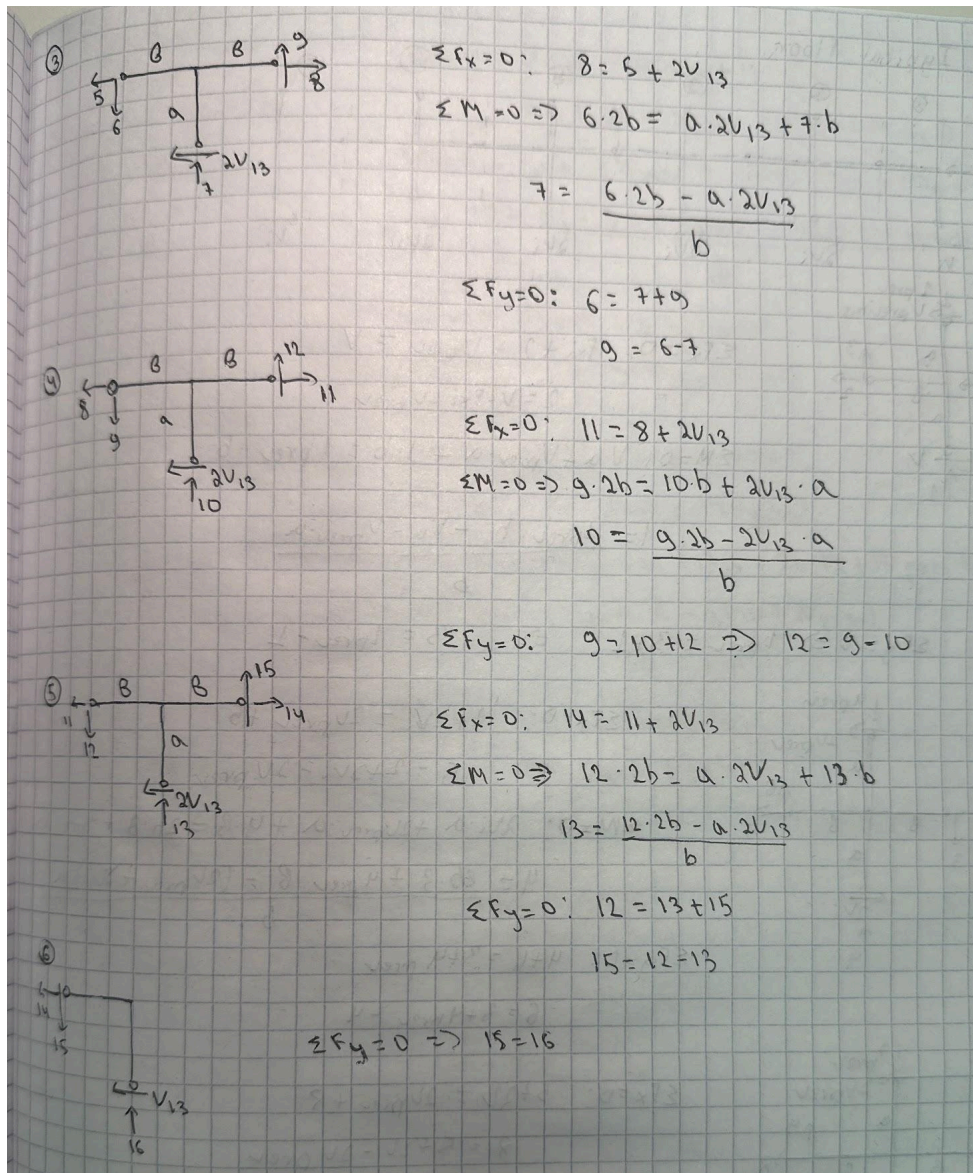 ③ B B 9
5 8
6 a
2V13
7
ΣFx=0: 8=5+2V13
ΣM=0 => 6·2b = a·2V13+7·b
7 = 6·2b - a·2V13
b
ΣFy=0: 6=7+9
9=6-7
④ B B 12
8 11
9 a
2V13
10
ΣFx=0: 11=8+2V13
ΣM=0 => 9·2b=10·b+2V13·a
10 = 9·2b-2V13·a
b
ΣFy=0: 9=10+12 => 12=9-10
⑤ B B 15
11 14
12 a
2V13
13
ΣFx=0: 14=11+2V13
ΣM=0 => 12·2b= a·2V13+13·b
13= 12·2b - a·2V13
b
ΣFy=0: 12=13+15
15=12-13
⑥
14
15
ΣFy=0 => 15=16
V13
16